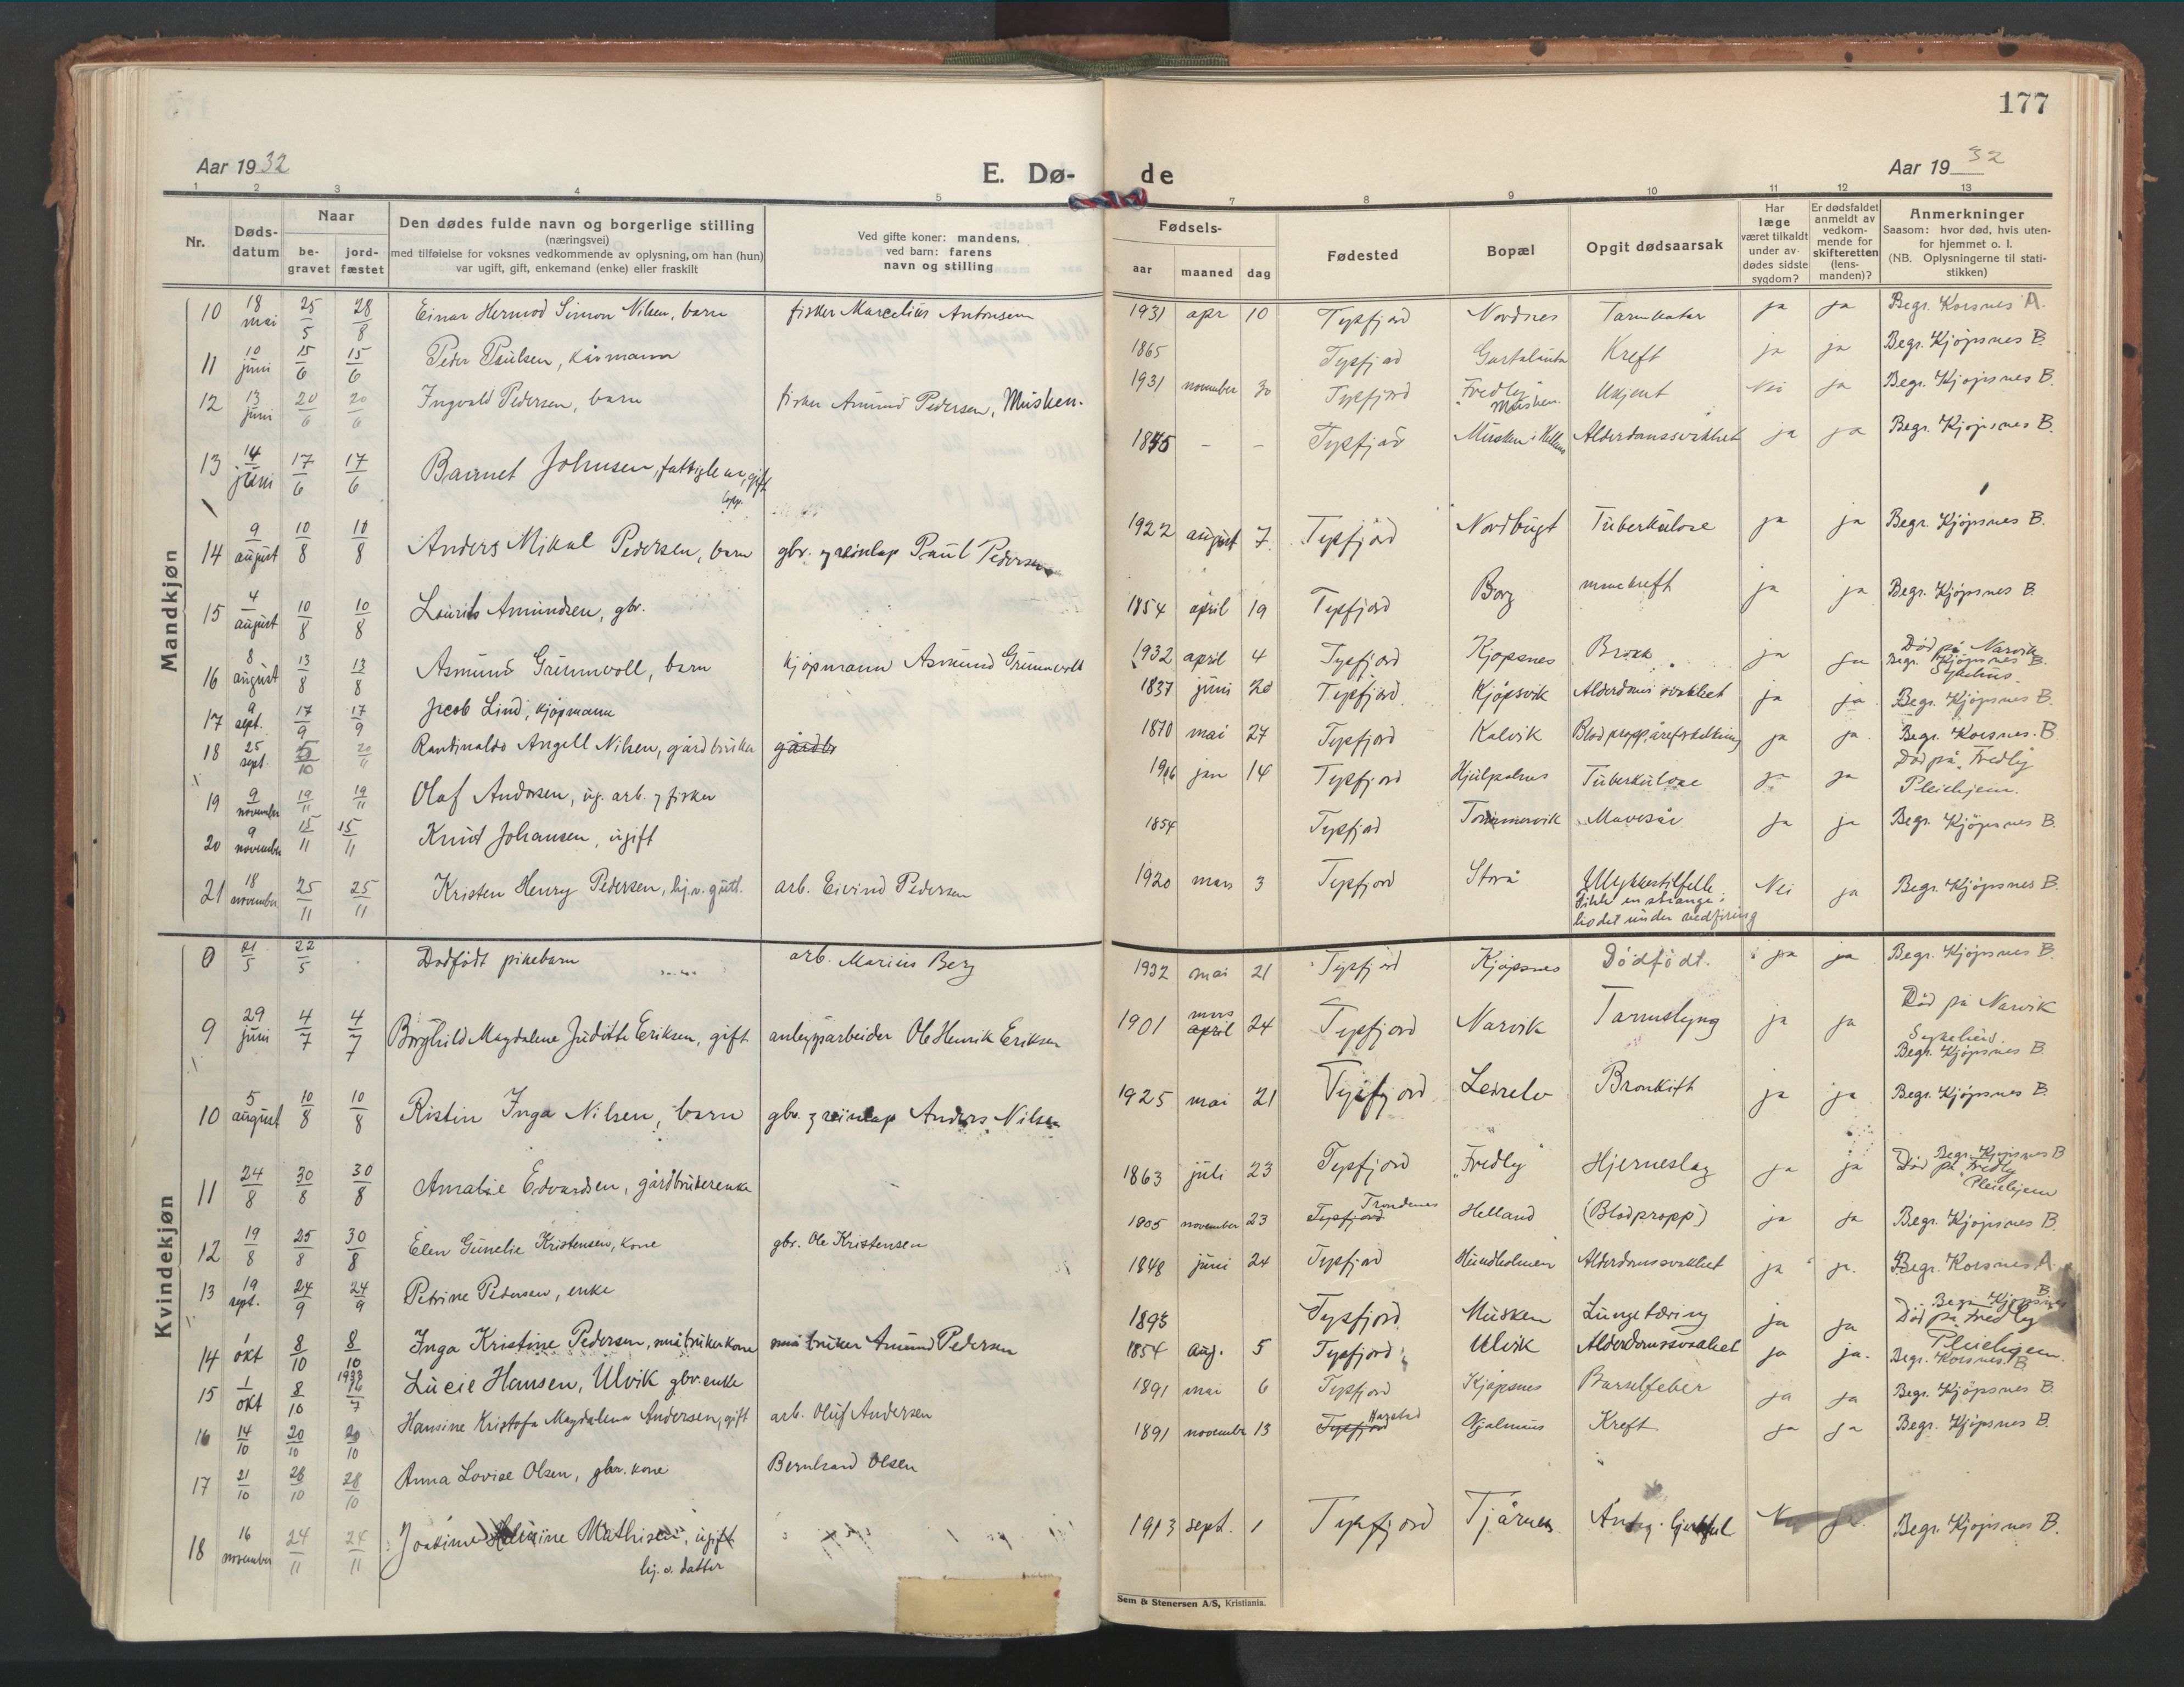 177
Aar 1932
E. Dø-
de
Aar 1932
1 2 3 4 5 7 8 9 10 11 12 13
Nr.
Døds-
datum
Naar
be-
gravet
jord-
fæstet
Den dødes fulde navn og borgerlige stilling
(næringsvei)
med tilføielse for voksnes vedkommende av oplysning, om han (hun)
var ugift, gift, enkemand (enke) eller fraskilt
Ved gifte koner: mandens,
ved barn: farens
navn og stilling
Fødsels-
aar
maaned
dag
Fødested
Bopæl
Opgit dødsaarsak
Har
læge
været tilkaldt
under av-
dødes sidste
sygdom?
Er dødsfaldet
anmeldt av
vedkom-
mende for
skifteretten
(lens-
manden)?
Anmerkninger
Saasom: hvor død, hvis uten-
for hjemmet o. l.
(NB. Oplysningerne til stati-
stikken)
Mandkjøn
10 18 mai 25/5 28/8 Einar Hermod Simon Nilsen, barn fisker Marcelius Antonsen 1931 apr 10 Tysfjord Nordnes Tarmkatar ja ja Begr. Korsnes A.
11 10 juni 15/6 15/6 Peder Paulsen, kårmann 1865 Tysfjord Kreft ja ja Begr. Kjöpsnes B.
12 13 juni 20/6 20/6 Ingvald Pedersen, barn fisker Amund Pedersen, Musken. 1931 november 30 Tysfjord Fredly Musken. Ukjent Nei ja Begr. Kjöpsnes B.
13 14 juni 17/6 17/6 Johnsen, gift 1845 - - Tysfjord Musken i Hellemo Alderdomssvakhet ja ja Begr. Kjöpsnes B.
14 9 august 10/8 10/8 Anders Mikal Pedersen, barn gbr. og reinlap Paul Pedersen 1922 august 7 Tysfjord Nordbugt Tuberkulose ja ja Begr. Kjöpsnes B.
15 4 august 10/8 10/8 Laurits Amundsen, gbr. 1854 april 19 Tysfjord Borg ja ja Begr. Kjöpsnes B.
16 8 august 13/8 13/8 Asmund Grünnvoll, barn kjøpmann Asmund Grünnvoll 1932 april 4 Tysfjord Kjøpsnes Brokk ja ja Död på Narvik Sykehus. Begr. Kjöpsnes B.
17 9 sept. 17/9 17/9 Jacob Lind, kjøpmann 1837 juni 20 Tysfjord Kjøpsvik Alderdoms svakhet ja ja Begr. Kjöpsnes B.
18 25 sept. 5/10 20/11 Randinaldo Angell Nilsen, gårdbruker gårdbr 1870 mai 27 Tysfjord Kalvik Blodpropp, åreforkalkning ja ja Begr. Korsnes. B
19 9 november 19/11 19/11 Olaf Andersen, ug. arb. og fisker 1906 jan 14 Tysfjord Tuberkulose ja ja Död på "Fredly Pleiehjem.
20 9 november 15/11 15/11 Knut Johansen, ugift 1854 Tysfjord Tömmervik Mavesår ja ja Begr. Kjöpsnes B.
21 18 november 25/11 25/11 Kristen Henry Pedersen, hj.v. gutt. arb. Eivind Pedersen 1920 mars 3 Tysfjord Storå Ulykkestilfelle. Fikk en stange i hodet under vedfiring Nei ja Begr. Kjöpsnes B.
Kvindekjøn
0 21/5 22/5 Dødfødt pikebarn arb. Marius Berg 1932 mai 21 Tysfjord Kjøpsnes Dödfödt. ja ja Begr. Kjöpsnes B.
9 29 juni 4/7 4/7 Borghild Magdalene Juditte Eriksen, gift anleggsarbeider Ole Henrik Eriksen 1901 mars april 24 Tysfjord Narvik Tarmslyng ja ja Död på Narvik Sykehus. Begr. Kjöpsnes B.
10 5 august 10/8 10/8 Ristin Inga Nilsen, barn gbr. og reinlap Anders Nilsen 1925 mai 21 Tysfjord Leirelv Bronkitt ja ja Begr. Kjöpsnes B.
11 24/8 30/8 30/8 Amalie Edvardsen, gårdbrukerenke 1863 juli 23 Tysfjord "Fredly" Hjerneslag ja ja Begr. Kjöpsnes B Död på "Fredly Pleiehjem
12 19/8 25/8 30/8 Elen Gunelie Kristensen, kone gbr. Ole Kristensen 1905 november 23 Tysfjord Trondenes Helland (Blodpropp) ja ja Begr. Kjöpsnes B.
13 19 sept. 24/9 24/9 Petrine Pedersen, enke 1848 juni 24 Tysfjord Hundholmen Alderdomssvakhet ja ja. Begr. Korsnes A.
14 1 okt 8/10 8/10 Inga Kristine Pedersen, småbrukerkone småbruker Amund Pedersen 1893 Tysfjord Musken Lungetæring ja ja Begr. Kjöpsnes B. Död på Fredly Pleiehjem.
15 1 okt 8/10 1933 16/7 Lucie Hansen, Ulvik gbr.enke 1854 aug. 5 Tysfjord Ulvik Alderdomssvakhet ja ja. Begr. Korsnes. B
16 14/10 20/10 20/10 Hansine Kristofa Magdalena Andersen, gift arb. Oluf Andersen 1891 mai 6 Tysfjord Kjøpsnes Barselfeber ja ja Begr. Kjöpsnes B.
17 21/10 28/10 28/10 Anna Lovise Olsen, gbr. kone Bernhard Olsen 1891 november 13 Tysfjord Harstad Kreft ja ja Begr. Kjöpsnes B.
18 16 november 24/11 24/11 Mathisen, ugift hj. v. datter 1913 sept. 1 Tysfjord Tjårnes ja Begr. Kjöpsnes B.
Sem & Stenersen A/S, Kristiania.